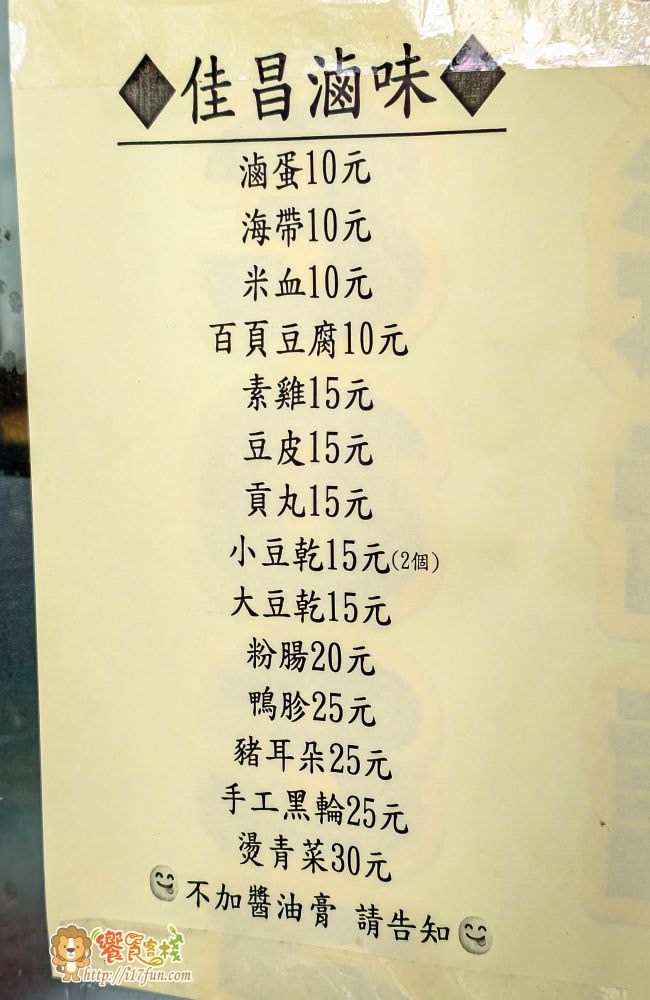 ◆佳昌滷味◆
滷蛋10元
海帶10元
米血10元
百頁豆腐10元
素雞15元
豆皮15元
貢丸15元
小豆乾15元(2個)
大豆乾15元
粉腸20元
鴨胗25元
豬耳朵25元
手工黑輪25元
燙青菜30元
不加醬油膏 請告知
饗食客棧
http://i17fun.com